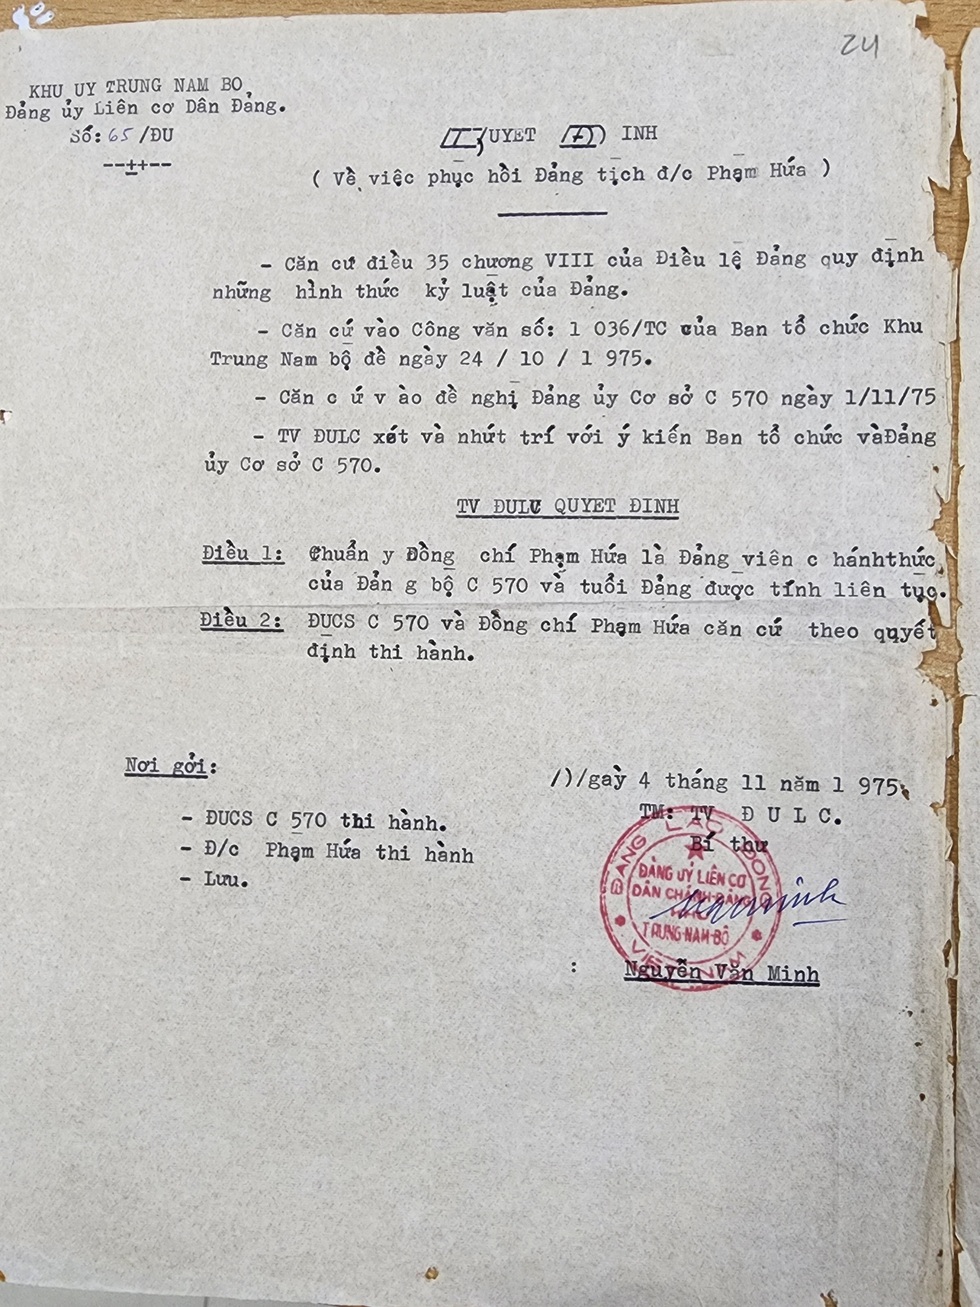 24
KHU UY TRUNG NAM BO
Đảng ủy Liên cơ Dân Đảng.
Số: 65 /ĐU
--++--
QUYET ĐINH
( Về việc phục hồi Đảng tịch đ/c Phạm Hứa )
- Căn cứ điều 35 chương VIII của Điều lệ Đảng quy định
những hình thức kỷ luật của Đảng.
- Căn cứ vào Công văn số: 1 036/TC của Ban tổ chức Khu
Trung Nam bộ đề ngày 24 / 10 / 1 975.
- Căn c ứ v ào đề nghị Đảng ủy Cơ sở C 570 ngày 1/11/75
- TV ĐULC xét và nhứt trí với ý kiến Ban tổ chức vàĐảng
ủy Cơ sở C 570.
TV ĐULC QUYET ĐINH
Điều 1: Chuẩn y Đồng chí Phạm Hứa là Đảng viên c hánhthức
của Đản g bộ C 570 và tuổi Đảng được tính liên tục.
Điều 2: ĐUCS C 570 và Đồng chí Phạm Hứa căn cứ theo quyết
định thi hành.
Nơi gởi:
- ĐUCS C 570 thi hành.
- Đ/c Phạm Hứa thi hành
- Lưu.
Ngày 4 tháng 11 năm 1 975
TM: TV Đ U L C.
Bí thư
ĐẢNG LAO ĐỘNG
ĐẢNG UỶ LIÊN CƠ
DÂN CHÁNH ĐẢNG
KHU
TRUNG NAM BỘ
VIỆT NAM
: Nguyễn Văn Minh